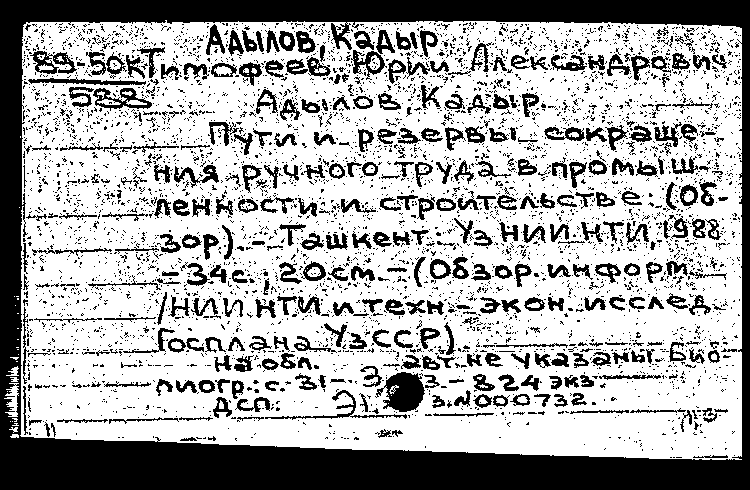 Адылов, Кадыр.
89-50к Тимофеев, Юрий Александрович
588 Адылов, Кадыр.
Пути и резервы сокраще-
ния ручного труда в промыш-
ленности и строительстве: (Об-
зор). - Ташкент: УзНИИНТИ, 1988
- 34с.; 20см. - (Обзор. информ.
/НИИ НТИ и техн.-экон. исслед.
Госплана УзССР).
На обл. авт. не указаны. Биб-
лиогр.: с. 31- 3 3. - 824 экз.
ДСП. Э1. з. N000732.